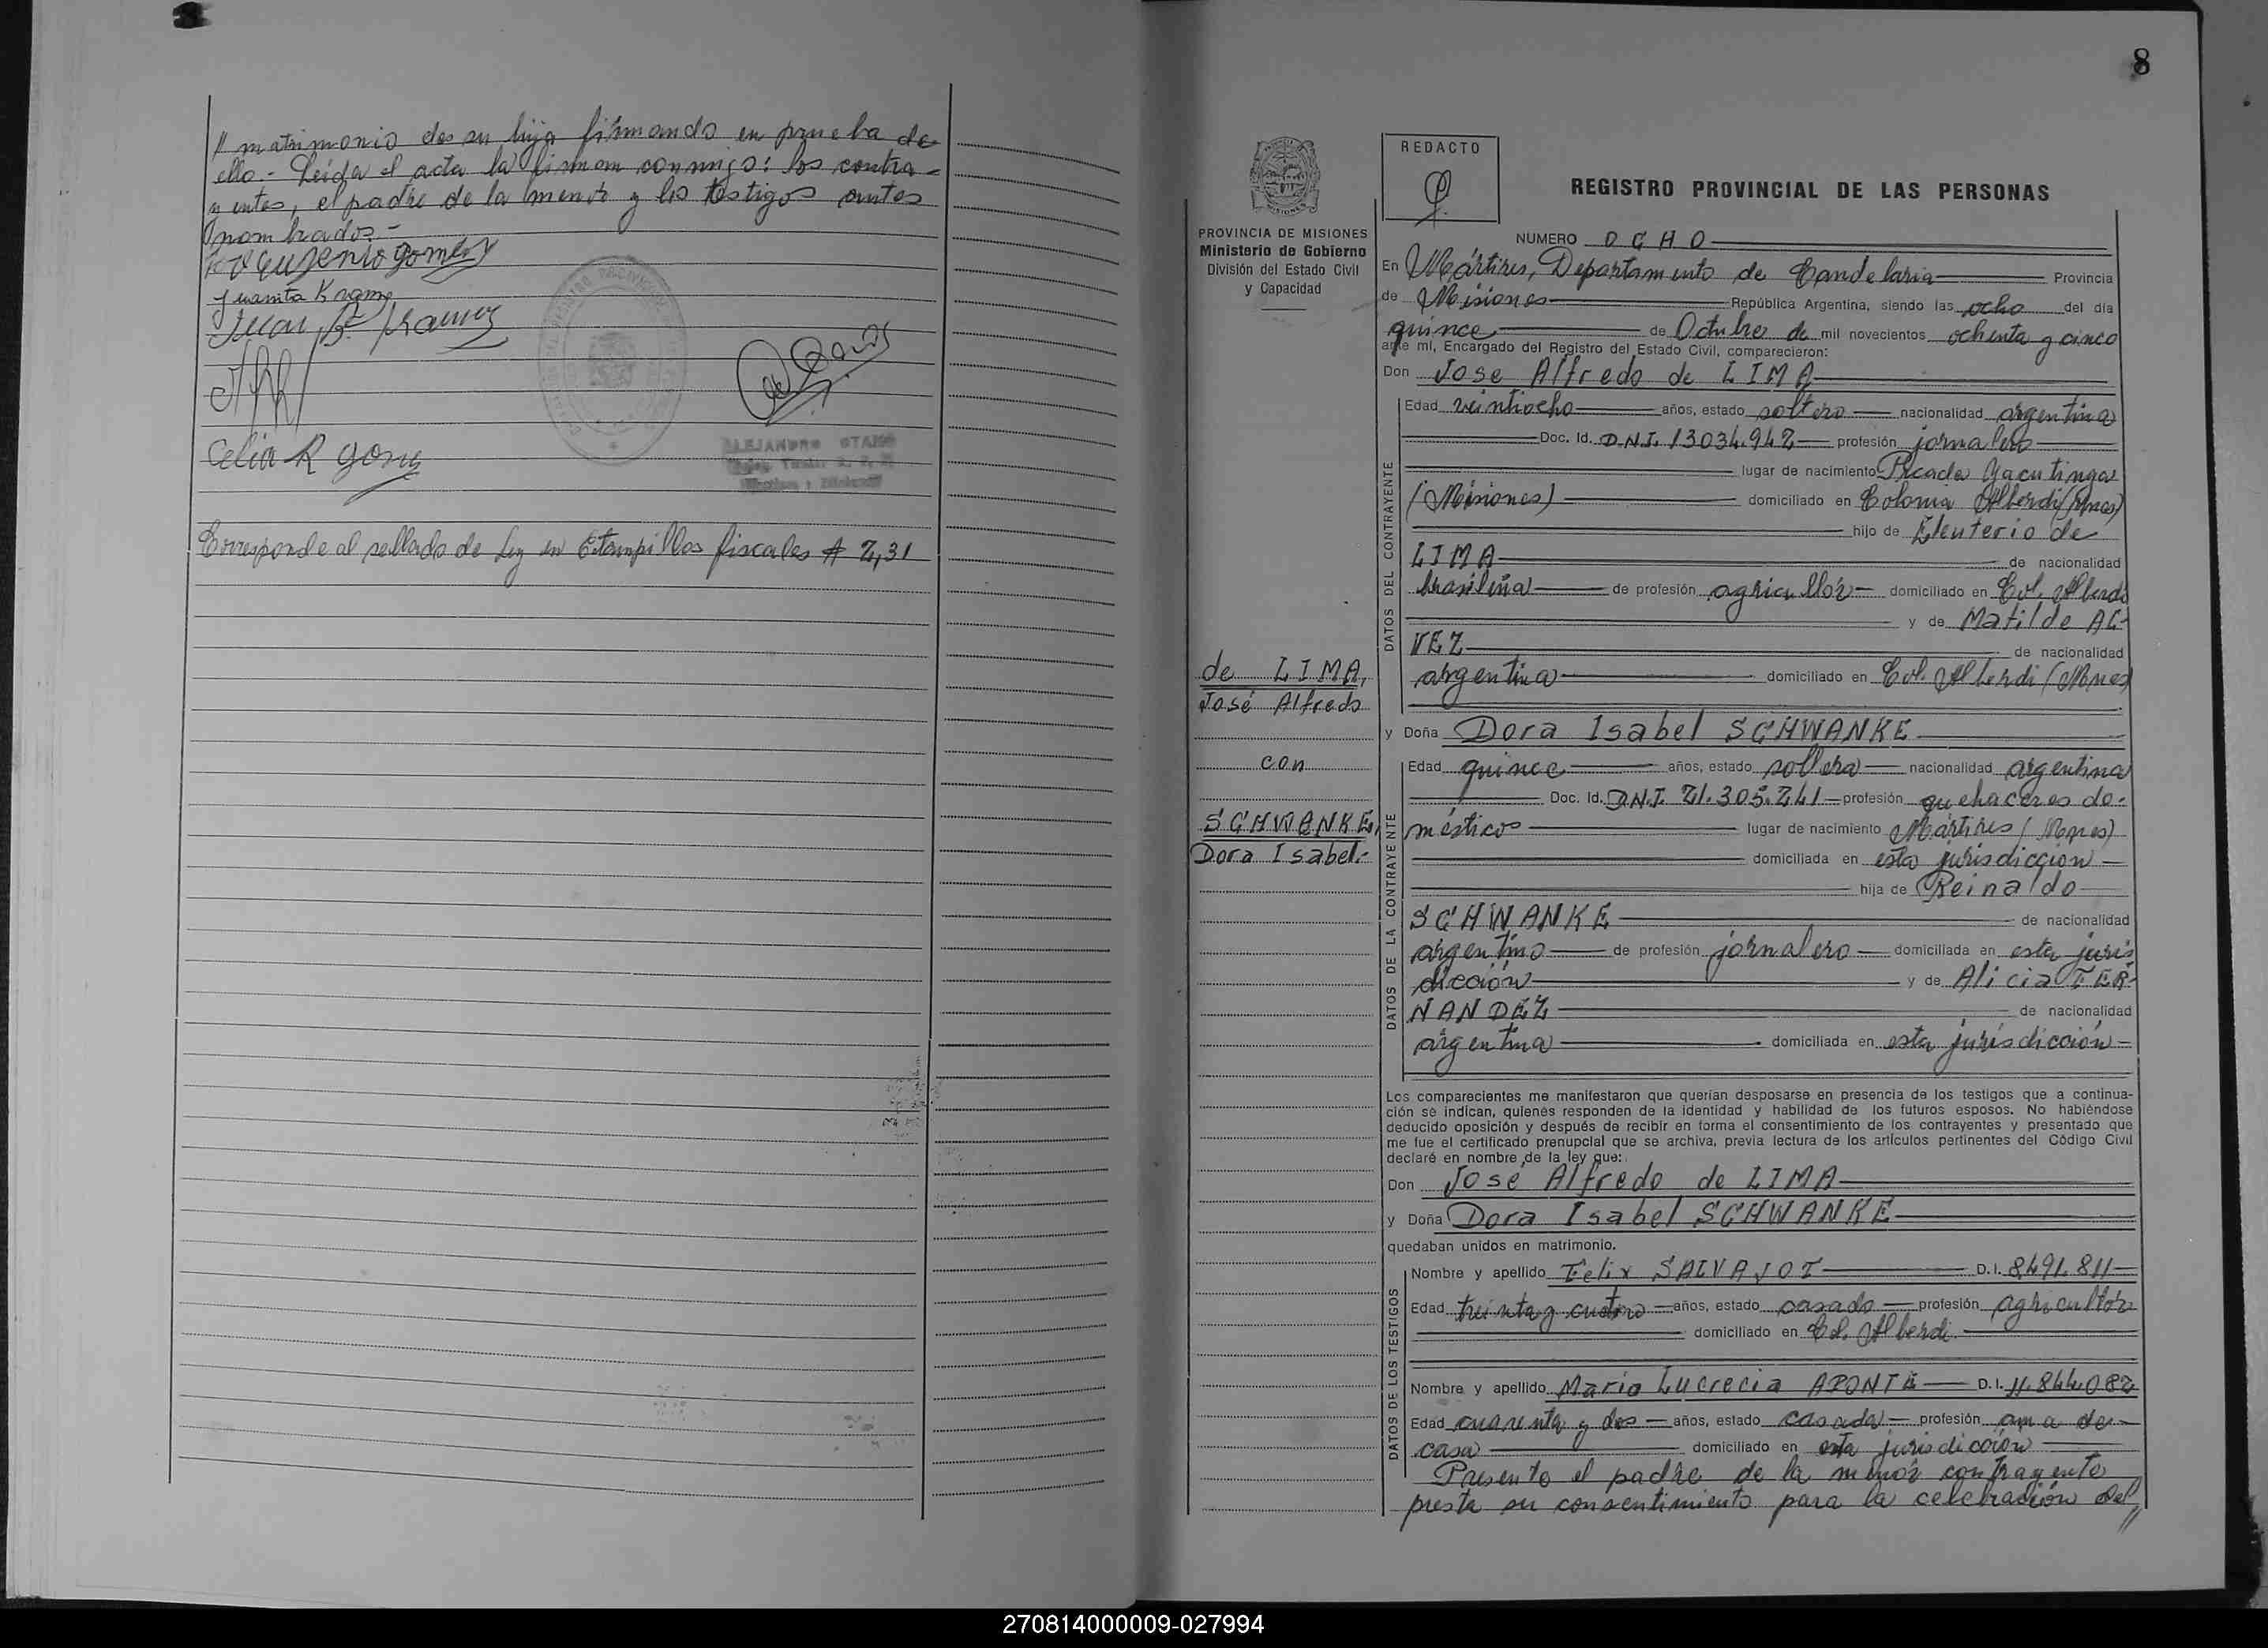 // matrimonio de su hija firmando en prueba de
ello.- Leída el acta la firman conmigo: los contra-
yentes, el padre de la menor y los testigos antes
nombrados.-
Eugenio Gomez
Juanita
Juan Bª Ramos
Celia R
ALEJANDRO
Corresponde al sellado de Ley en Estampillas fiscales A 2,31
8
PROVINCIA DE MISIONES
Ministerio de Gobierno
División del Estado Civil
y Capacidad
de LIMA,
José Alfredo
con
SCHWANKE,
Dora Isabel.-
REDACTO
REGISTRO PROVINCIAL DE LAS PERSONAS
NUMERO OCHO
En Mártires, Departamento de Candelaria Provincia
de Misiones República Argentina, siendo las ocho del día
quince de Octubre de mil novecientos ochenta y cinco
ante mí, Encargado del Registro del Estado Civil, comparecieron:
Don Jose Alfredo de LIMA
Edad veintiocho años, estado soltero nacionalidad argentina
Doc. Id. D.N.I. 13034.942 profesión jornalero
lugar de nacimiento Picada Yacutinga
(Misiones) domiciliado en Colonia Alberdi (Mnes)
hijo de Eleuterio de
LIMA de nacionalidad
brasileña de profesión agricultor domiciliado en Col. Alberdi
y de Matilde AL-
VEZ de nacionalidad
argentina domiciliado en Col. Alberdi (Mnes)
y Doña Dora Isabel SCHWANKE
Edad quince años, estado soltera nacionalidad argentina
Doc. Id. D.N.I. 21.305.241 profesión quehaceres do-
mésticos lugar de nacimiento Mártires (Mnes)
domiciliada en esta jurisdicción
hija de Reinaldo
SCHWANKE de nacionalidad
argentino de profesión jornalero domiciliada en esta juris
dicción y de Alicia FER-
NANDEZ de nacionalidad
argentina domiciliada en esta jurisdicción
Los comparecientes me manifestaron que querían desposarse en presencia de los testigos que a continua-
ción se indican, quienes responden de la identidad y habilidad de los futuros esposos. No habiéndose
deducido oposición y después de recibir en forma el consentimiento de los contrayentes y presentado que
me fue el certificado prenupcial que se archiva, previa lectura de los artículos pertinentes del Código Civil
declaré en nombre de la ley que:
Don José Alfredo de LIMA
y Doña Dora Isabel SCHWANKE
quedaban unidos en matrimonio.
Nombre y apellido Felix SALVAJOT D.I. 8.491.811
Edad treinta y cuatro años, estado casado profesión agricultor
domiciliado en Col. Alberdi
Nombre y apellido Maria Lucrecia APONTE D.I. 11.844.082
Edad cuarenta y dos años, estado casada profesión ama de
casa domiciliado en esta jurisdicción
Presente el padre de la menor contrayente
presta su consentimiento para la celebración del//
DATOS DEL CONTRAYENTE
DATOS DE LA CONTRAYENTE
DATOS DE LOS TESTIGOS
270814000009-027994